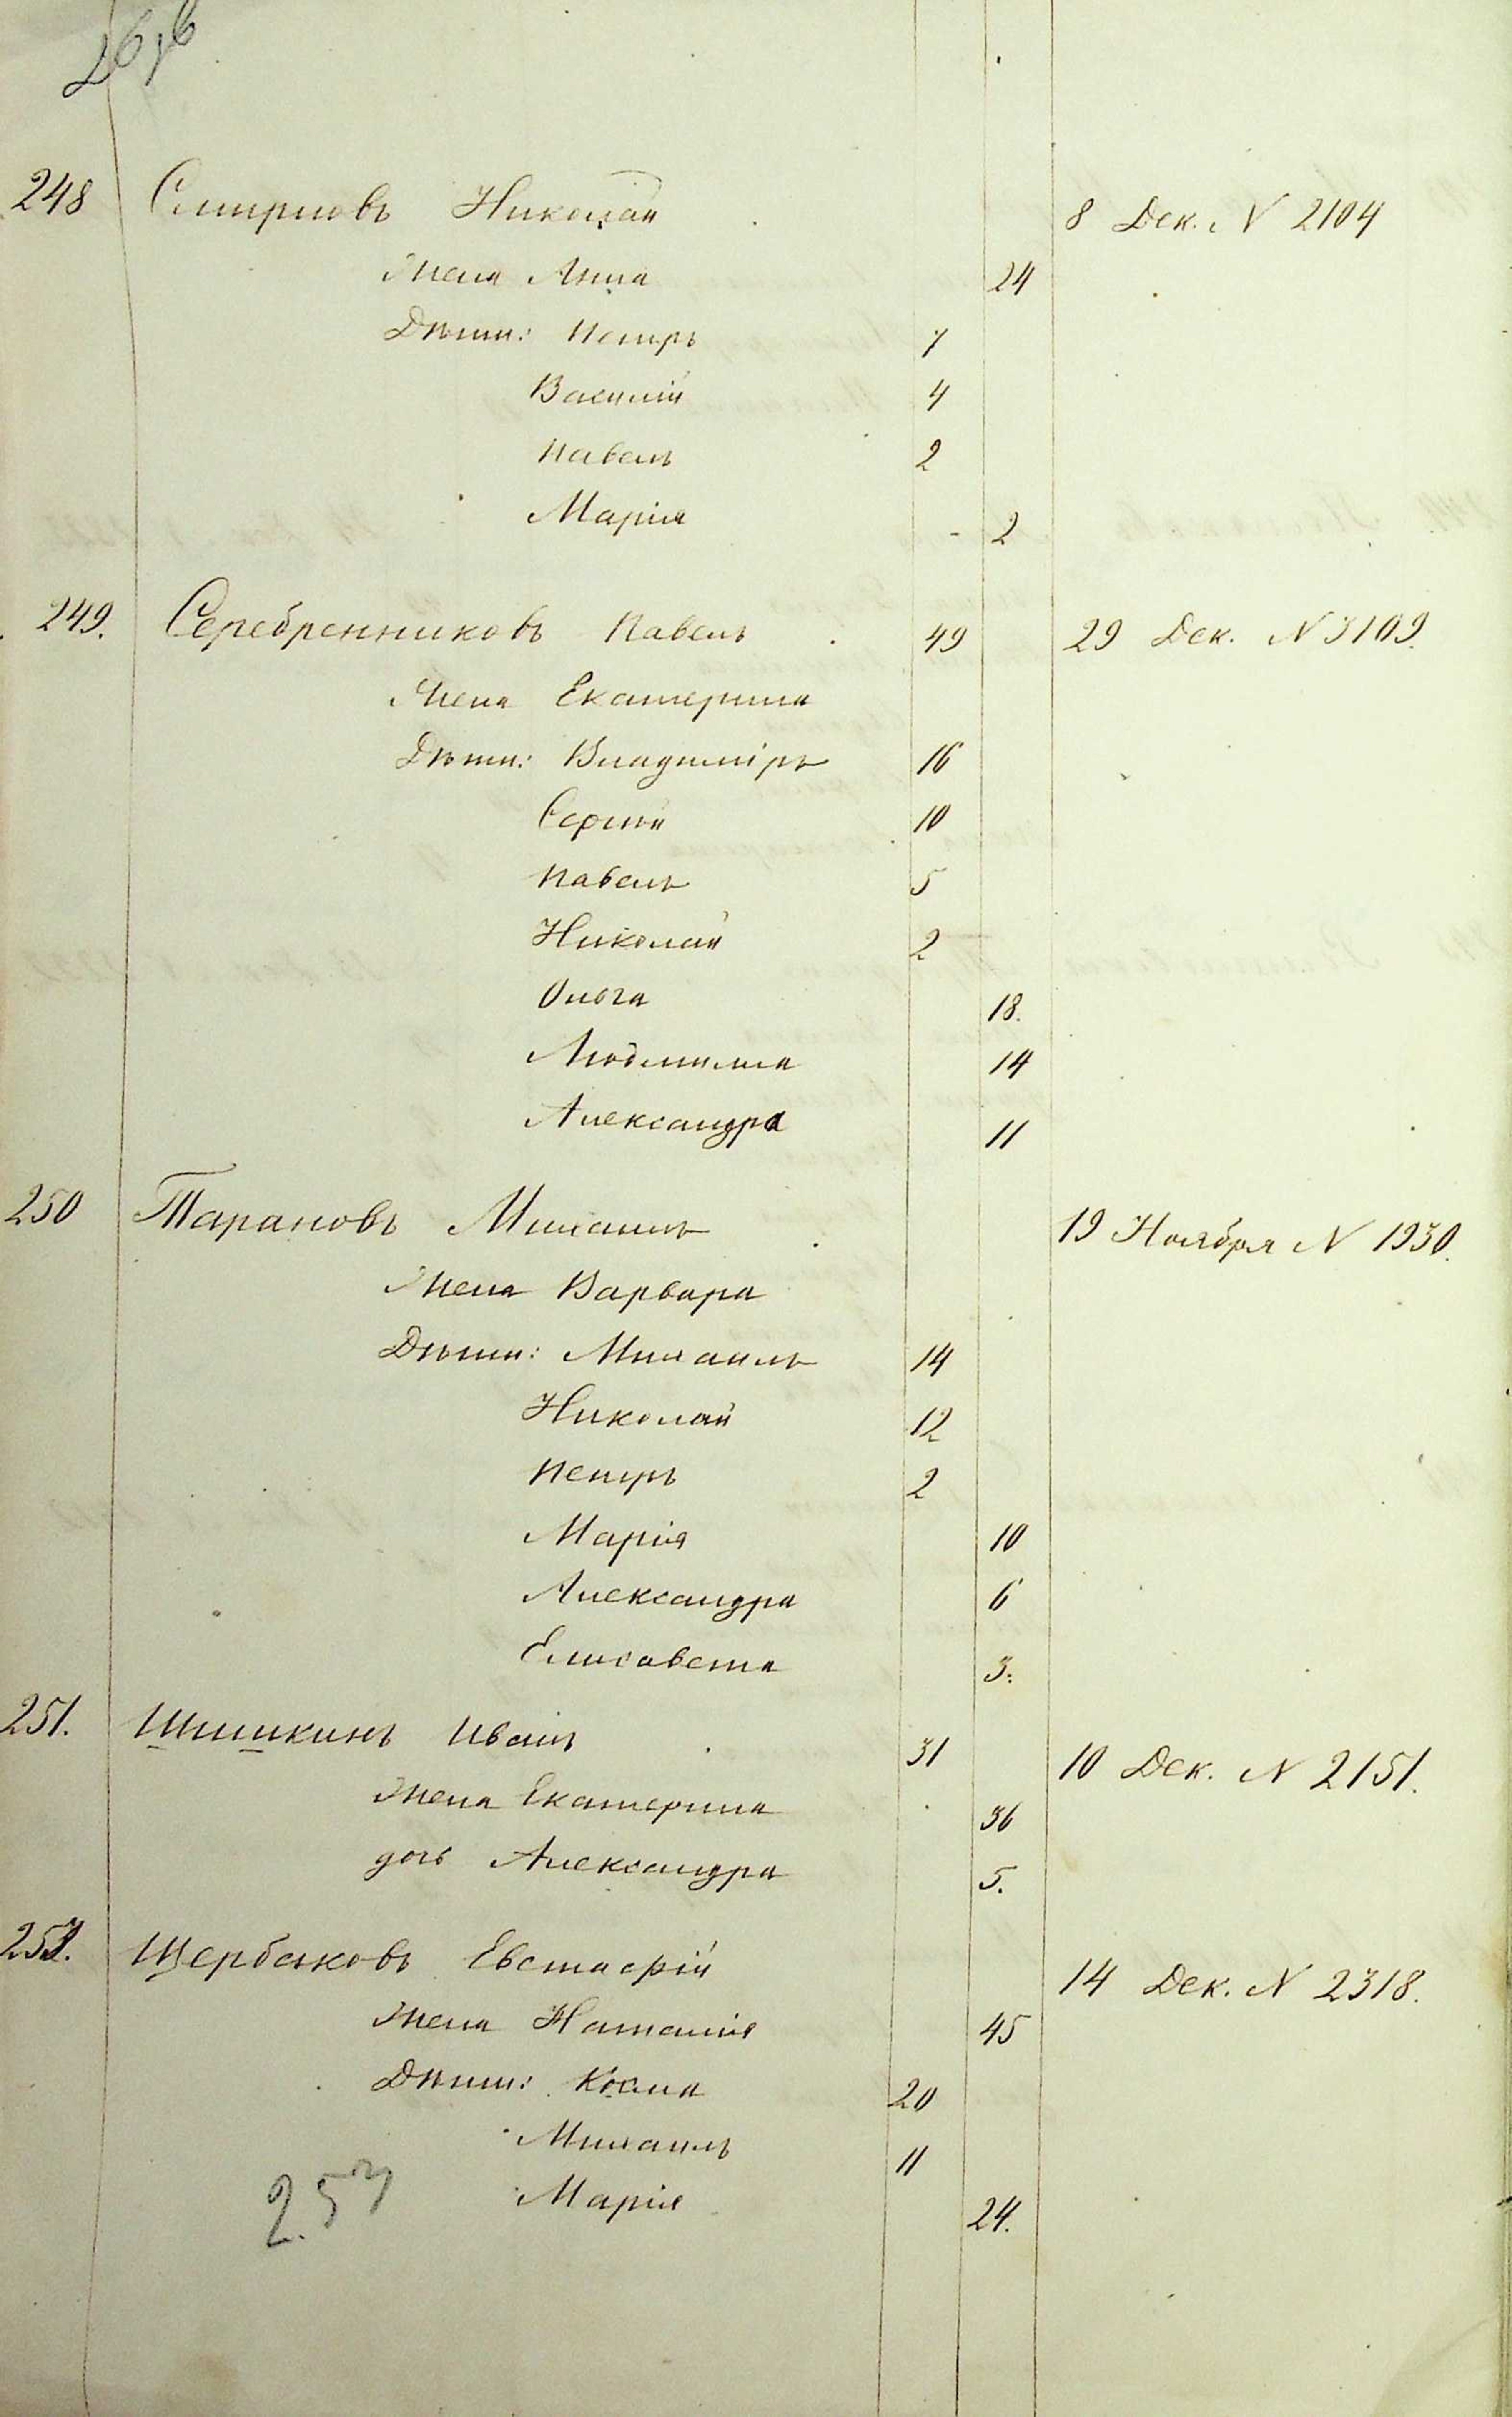 248 Смирновъ Николай 8 Дек. N 2104
Жена Анна 24
Дѣти: Петръ 7
Василій 4
Павелъ 2
Марія - 2
249. Серебренниковъ Павелъ 49 29 Дек. N 3109.
Жена Екатерина
Дѣти: Владиміръ 16
Сергѣй 10
Павелъ 5
Николай 2
Ольга 18.
Людмилла 14
Александра 11
250 Тарановъ Михаилъ 19 Ноября N 1930.
Жена Варвара
Дѣти: Михаилъ 14
Николай 12
Петръ 2
Марія 10
Александра 6
Елисавета 3.
251. Шишкинъ Иванъ 31 10 Дек. N 2151.
Жена Екатерина 36
дочь Александра 5.
Щербаковъ Евстафій 14 Дек. N 2318.
Жена Наталія 45
Дѣти: Косма 20
Михаилъ 11
Марія 24.
253